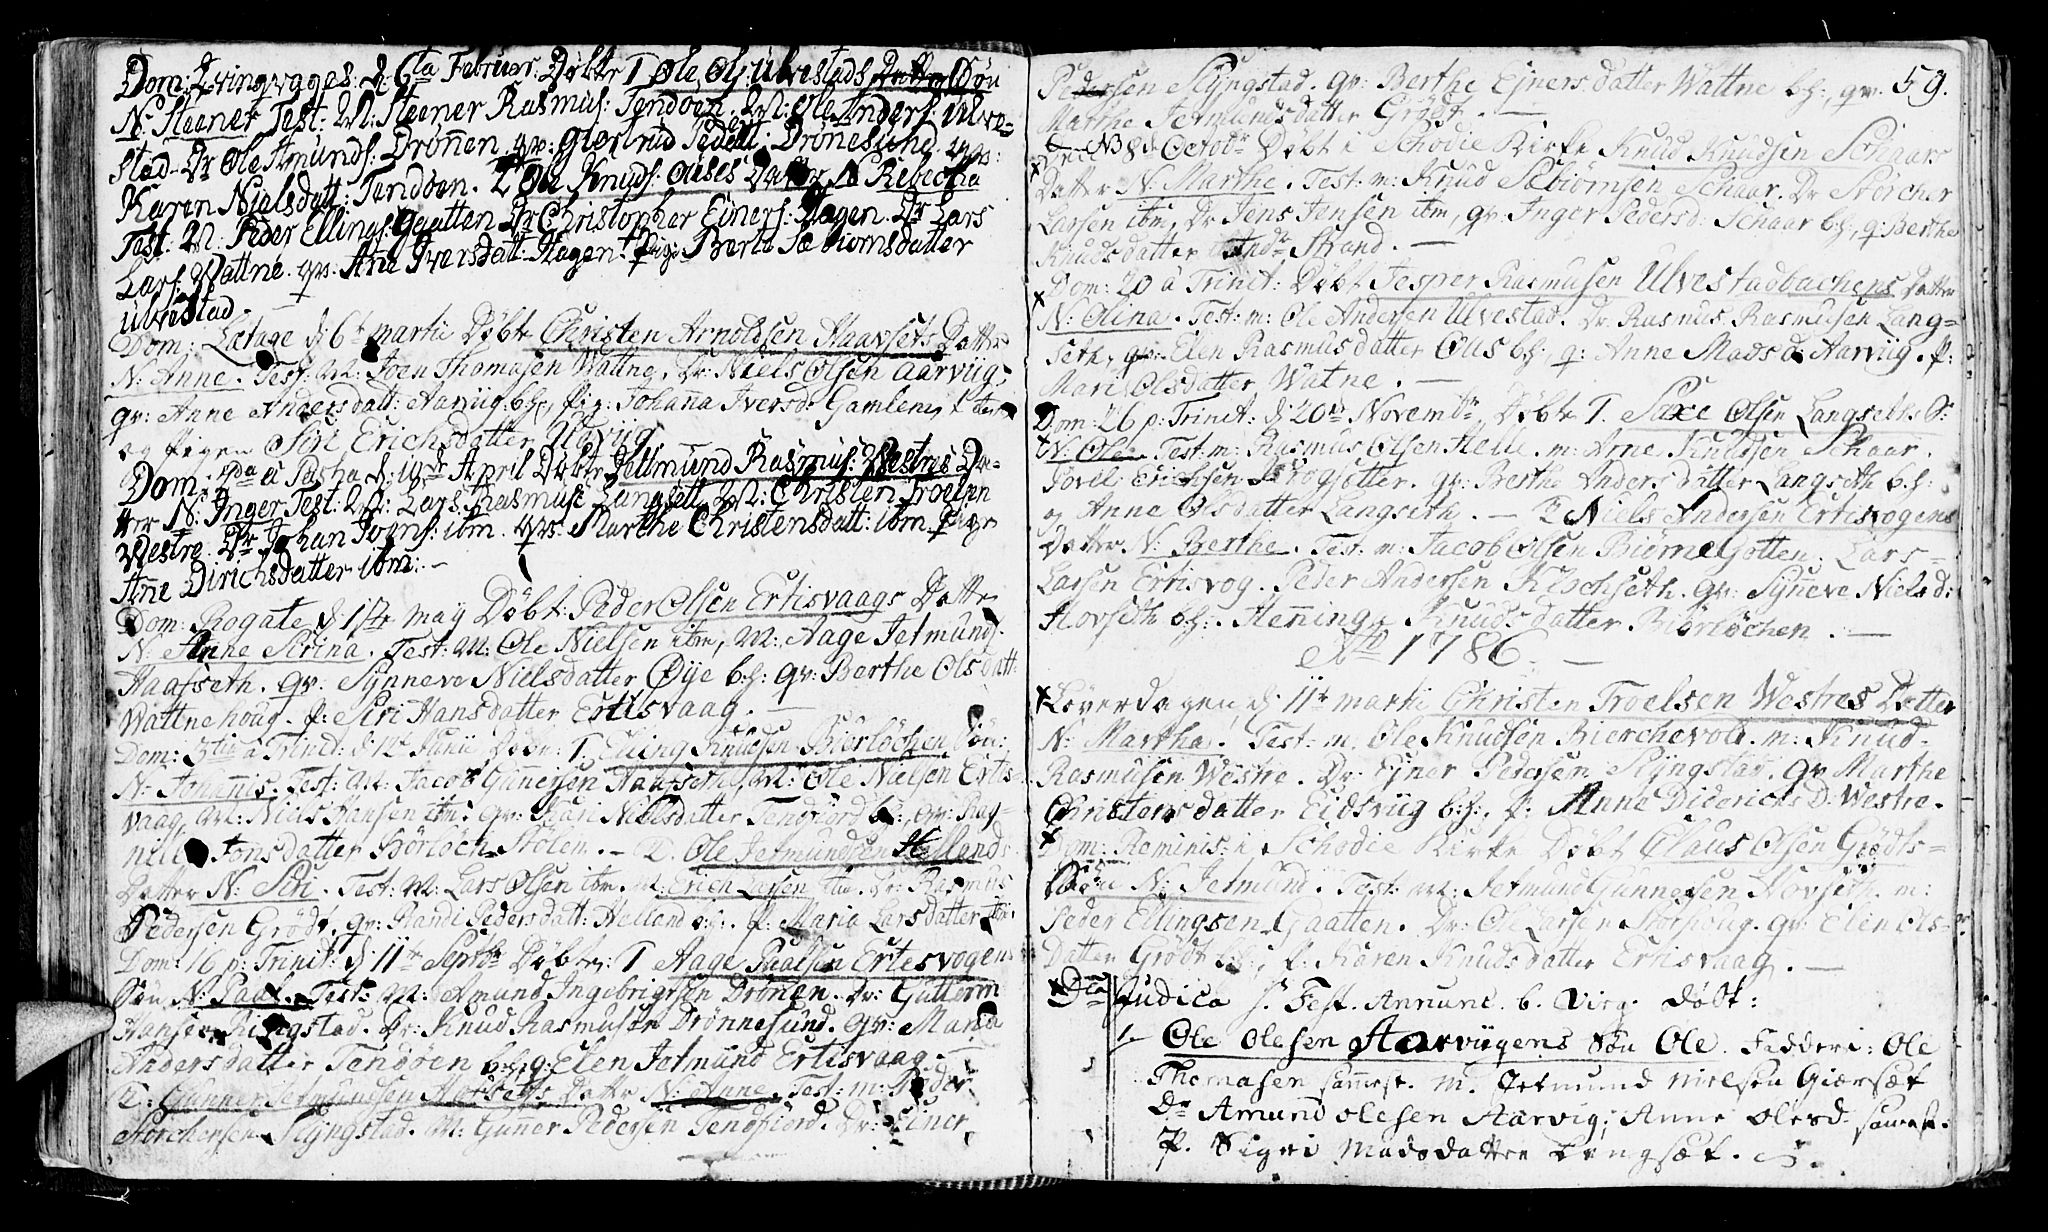 Dom: Qvinqvages: d: 6ta Februar: Døbt T Ole Ols: Ulvestads Søn
N: Steener Test: M: Steener Rasmus: Tendøen. M: Ole Anders: Ulve-
stad. Dr Ole Amunds: Drønen. qv: Giertrud Peders: Drønesund. qv:
Karen Nielsdatt: Tendøen. 2 Ole Knuds: Ouses Datter N: Rebecha
Test: M: Peder Ellings: Gaatten Dr Christopher Einers: Hagen. Dr Lars
Lars: Wattne. qv: Ane Iversdatt: Hagen. pige Berte Sæbiørnsdatter
Ulvestad.
Dom: Lætare d: 6te martii Døbt Christen Arnoldsen Haavsets Datter
N: Anne. Test: M: Joen Thomasen Wattne, Dr: Niels Olsen Aarviig,
qv: Anne Andersdatt: Aarviig b:h:, pig: Johanna Iversd: Gamlem,
og pigen Siri Erichsdatter Ulsviig
Dom: 2da a Pascha d: 10de April Døbt Jettmund Rasmus: Westres Dat-
ter N: Inger Test: M: Lars Rasmus: Langsett, M: Christen Troelsen
Westre. Dr Johan Joens: ibm. qv: Marthe Christensdatt: ibm. pige
Ane Dirichsdatter ibm: -
Dom: Rogate d: 1te may Døbt: Peder Olsen Ertisvaags Datter
N: Anne Sirina. Test: M: Ole Nielsen ibm, M: Aage Jetmunds:
Haafseth. qv: Synneve Nielsdatter Øye b:h: qv: Berthe Olsdatt:
Wattnehoug. p: Siri Hansdatter Ertisvaag. -
Dom: 3tia a Trinit: d: 12te Junii, Døbt: 1. Elling Knudsen Bierløchen Søn:
N: Johannis. Test: M: Jacob Gunnersen Haafseth, M: Ole Nielsen Ertis-
vaag, M: Niels Hansen ibm: qv: Kari Nielsdatter Tendfiord b:h:, qv: Rag-
nild Jonsdatter Børløch-Stølen. - 2. Ole Jetmundsen Hellands
Datter N: Siri. Test: M: Lars Olsen ibm. M: Erich Larsen ibm. Dr: Rasmus
Pedersen Grødt, qv: Randi Pedersdatt: Helland b:h:. p: Maria Larsdatter ibm.
Dom: 16 p: Trinit: d: 11te Septbr Døbt: 1 Aage Paalsen Ertesvogens
Søn N: Paal. Test: M: Amund Ingebrigtsen Drønen. Dr: Guttorm
Hansen Ringstad. Dr: Knud Rasmusen Drønnesund. qv: Maria
Andersdatter Tendøen b:h: q: Elen Jetmund Ertisvaag. -
2: Gunner Jetmundsen Hofseths Datter N: Anne. Test: m: Peder
Storchersen Slyngstad. M: Guner Pedersen Tendfiord. Dr: Einer
59.
Pedersen Slyngstad. qv: Berthe Ejnersdatter Wattne b:h:, qv:
Marthe Jetmundsdatter Grødt. -
Den 8de Octobr Døbt i Schodie Kirke Knud Knudsen Schaars
Datter N: Marthe. Test: m: Knud Sæbiørnsen Schaar. Dr Storcher
Larsen ibm, Dr Jens Jensen ibm, qv: Inger Pedersd: Schaar b:h:, q: Berthe
Knudsdatter Strand. -
Dom: 20 a Trinit: Døbt Jesper Rasmusen Ulvestadbachens Datter
N: Olina. Test: m: Ole Andersen Ulvestad. Dr. Rasmus Rasmusen Lang-
seth, qv: Elen Rasmusdatter Ous b:h:, q: Anne Madsd: Aarviig. p:
Mari Olsdatter Watne. -
Dom: 26 p: Trinit: d: 20de Novembr Døbt 1. Saxe Olsen Langseths S:
N: Ole. Test: m: Rasmus Olsen Helle. m: Arne Knudsen Schaar.
Povel Erichsen Krogsotter. qv: Berthe Andersdatter Langseth b:h:
og Anne Olsdatter Langseth. - 2 Niels Andersen Ertisvogens
Datter N: Berthe. Test: m: Jacob Olsen Biørnegotten. Lars-
Larsen Ertisvog. Peder Andersen Kirchseth. qv: Synneve Nielsd:
Hovseth b:h:. Henning Knudsdatter Biørløchen. -
Ao 1786. -
Løverdagen d: 11te martii Christen Troelsen Westres Datter
N: Martha. Test: m. Ole Knudsen Bierchevold. m: Knud-
Rasmusen Westre. Dr: Ejner Pedersen Slyngstad. qv Marthe
Christensdatter Eidsviig b:h:, p: Anne Diderichsd: Westre.
Dom: Reminis: i Schodie Kirke Døbt Claus Olsen Grødts-
Søn N: Jetmund. Test: M: Jetmund Gunnersen Hovseth. m:
Peder Ellingsen Gaatten. Dr: Ole Larsen Storhoug. qv: Elen Ols-
Datter Grødt b:h:; p: Karen Knudsdatter Ertisvaag. -
Dca Judica s. Fest. Annunc. b. Virg. Døbt:
1. Ole Olesen Aarviigens Søn Ole. Fadderi: Ole
Thomasen samest. m. Jetmund Nielsen Giærsæt
Dr Amund Olesen Aarvig; Anne Olesd samest.
P. Sigri Madsdatter Langsæt.